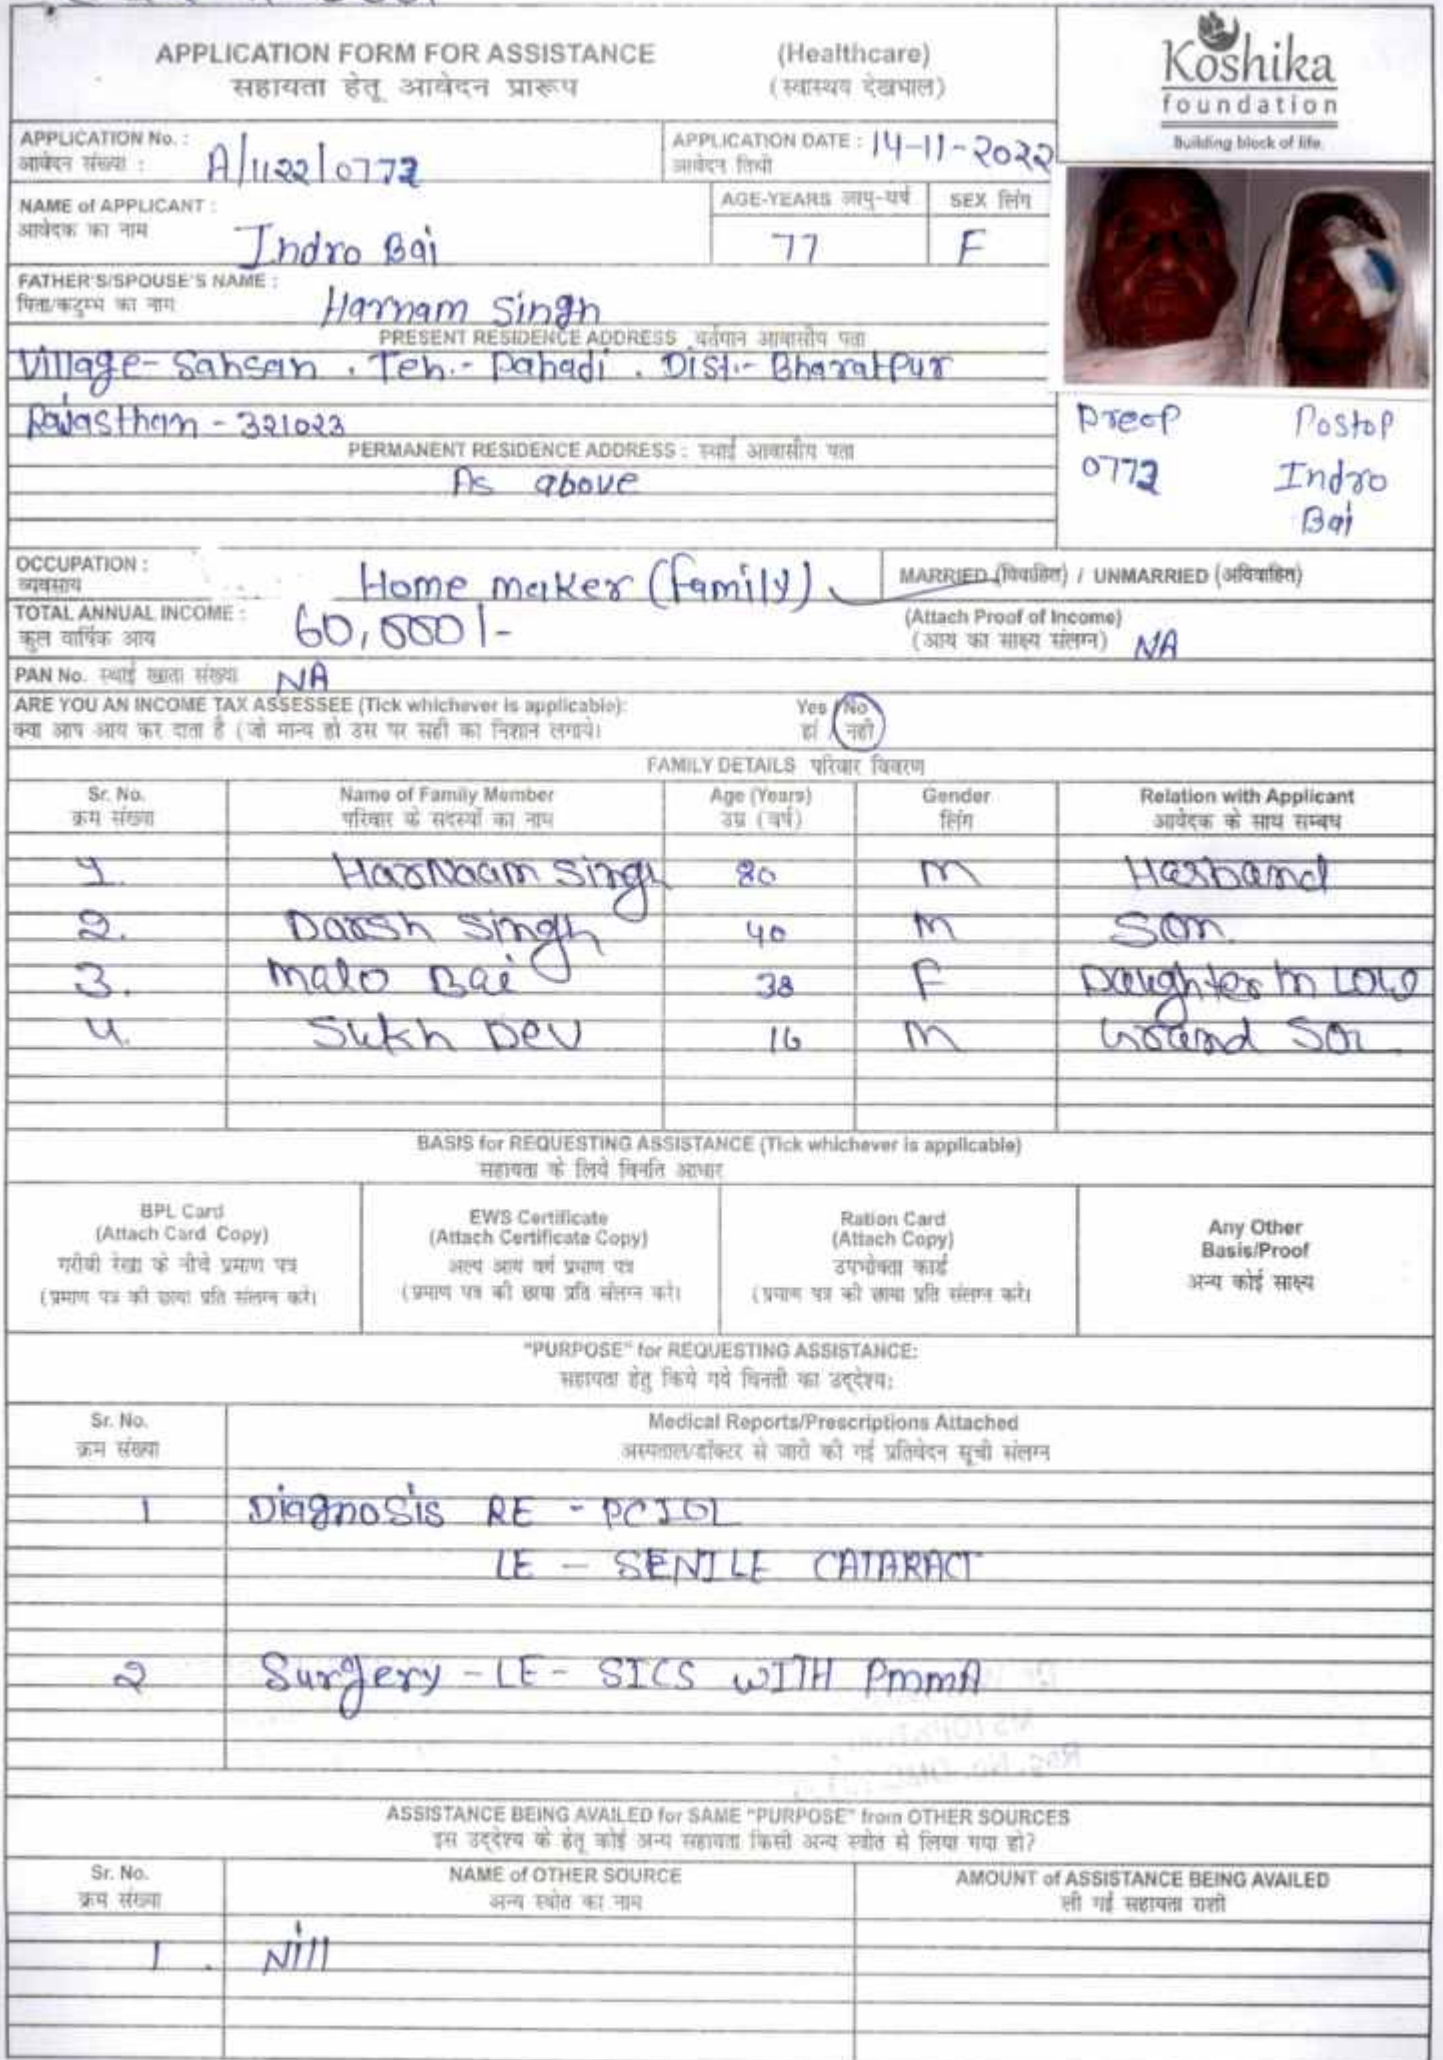 APPLICATION FORM FOR ASSISTANCE (Healthcare)
सहायता हेतू आवेदन प्रारूप (स्वास्थय देखभाल)
Koshika
foundation
Building block of life.
APPLICATION No. : A/1122/0772
आवेदन संख्या :
APPLICATION DATE : 14-11-2022
आवेदन तिथी
NAME of APPLICANT : Indro Bai
आवेदक का नाम
AGE-YEARS आयु-वर्ष 77
SEX लिंग F
FATHER'S/SPOUSE'S NAME : Harnam Singh
पिता/कटुम्भ का नाम
PRESENT RESIDENCE ADDRESS वर्तमान आवासीय पता
Village- Sahsan . Teh.- Pahadi . Dist.- Bharatpur
Rajasthan - 321023
PERMANENT RESIDENCE ADDRESS : स्थाई आवासीय पता
As above
Preop Postop
0772 Indro
Bai
OCCUPATION : Home maker (family)
व्यवसाय
MARRIED (विवाहित) / UNMARRIED (अविवाहित)
TOTAL ANNUAL INCOME : 60,000/-
कुल वार्षिक आय
(Attach Proof of Income)
(आय का साक्ष्य संलग्न) NA
PAN No. स्थाई खाता संख्या NA
ARE YOU AN INCOME TAX ASSESSEE (Tick whichever is applicable): Yes / No
क्या आप आय कर दाता है (जो मान्य हो उस पर सही का निशान लगाये। हां / नही
FAMILY DETAILS परिवार विवरण
Sr. No. Name of Family Member Age (Years) Gender Relation with Applicant
क्रम संख्या परिवार के सदस्यों का नाम उम्र (वर्ष) लिंग आवेदक के साथ सम्बध
1. HarNaam Singh 80 M Hasband
2. Darsh Singh 40 M Son.
3. Malo Bai 38 F Daughter in Low
4. Sukh Dev 16 M Grand Son
BASIS for REQUESTING ASSISTANCE (Tick whichever is applicable)
सहायता के लिये विनति आधार
BPL Card
(Attach Card Copy)
गरीबी रेखा के नीचे प्रमाण पत्र
(प्रमाण पत्र की छाया प्रति संलग्न करे।
EWS Certificate
(Attach Certificate Copy)
अल्प आय वर्ग प्रमाण पत्र
(प्रमाण पत्र की छाया प्रति संलग्न करे।
Ration Card
(Attach Copy)
उपभोक्ता कार्ड
(प्रमाण पत्र की छाया प्रति संलग्न करे।
Any Other
Basis/Proof
अन्य कोई साक्ष्य
"PURPOSE" for REQUESTING ASSISTANCE:
सहायता हेतु किये गये विनती का उद्देश्य:
Sr. No. Medical Reports/Prescriptions Attached
क्रम संख्या अस्पताल/डॉक्टर से जारी की गई प्रतिवेदन सूची संलग्न
1 Diagnosis RE - PCIOL
LE - SENILE CATARACT
2 Surgery - LE - SICS WITH PMMA
ASSISTANCE BEING AVAILED for SAME "PURPOSE" from OTHER SOURCES
इस उद्देश्य के हेतू कोई अन्य सहायता किसी अन्य स्त्रोत से लिया गया हो?
Sr. No. NAME of OTHER SOURCE AMOUNT of ASSISTANCE BEING AVAILED
क्रम संख्या अन्य स्त्रोत का नाम ली गई सहायता राशी
1. Nill